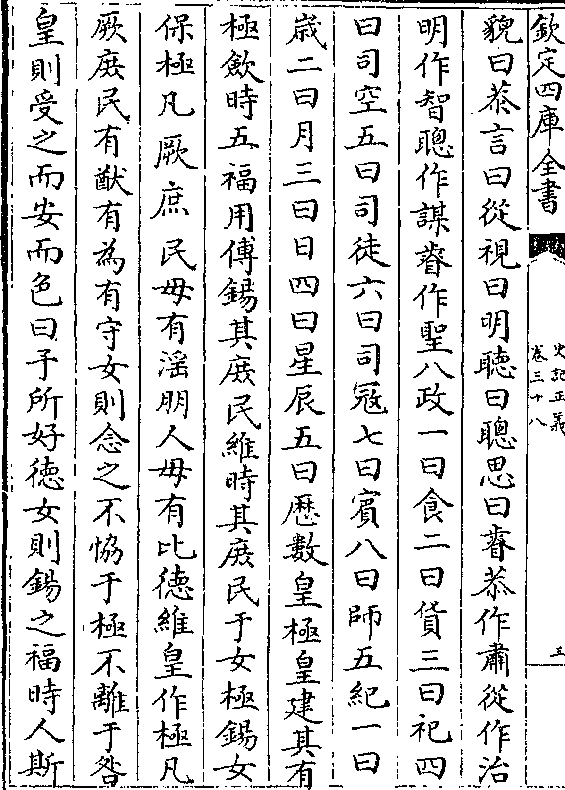 欽定四庫全書
史記正義
卷三十八
五
貌曰恭言曰從視曰明聽曰聰思曰睿恭作肅從作治
明作智聰作謀睿作聖八政一曰食二曰貨三曰祀四
曰司空五曰司徒六曰司冦七曰賓八曰師五紀一曰
歳二曰月三曰日四曰星辰五曰厯數皇極皇建其有
極歛時五福用傅錫其庶民維時其庶民于女極錫女
保極凡厥庶民毋有淫朋人毋有比德維皇作極凡
厥庶民有猷有為有守女則念之不恊于極不離于咎
皇則受之而安而色曰予所好德女則錫之福時人斯